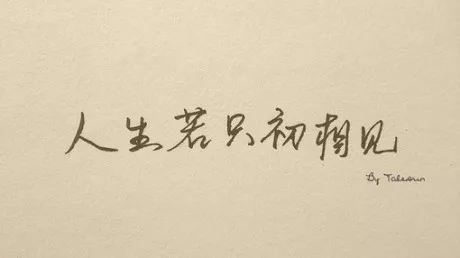 人生若只初相见
By Takesun